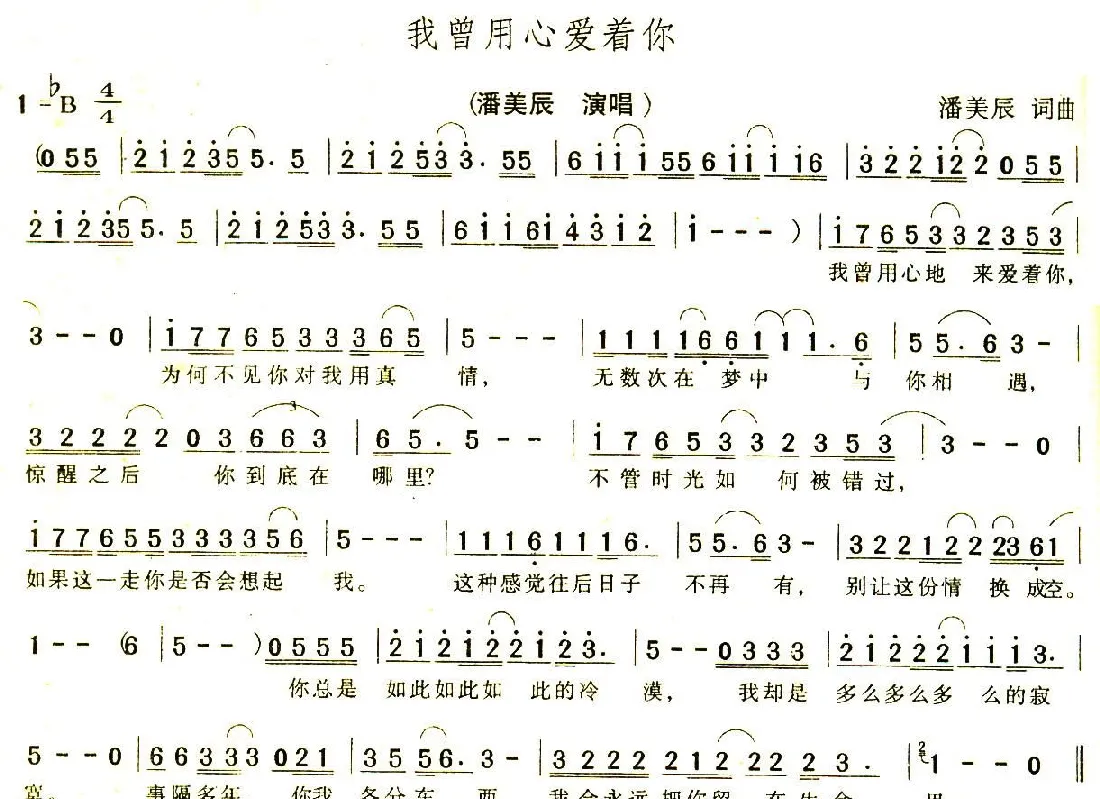 我曾用心爱着你
1=♭B 4/4 (潘美辰 演唱) 潘美辰 词曲
(055 | 212355.5 | 212533.55 | 6111556111116 | 322122055 |
212355.5 | 212533.55 | 611614312 | 1---) | 1765332353 |
我曾用心地 来爱着你,
3--0 | 17765333365 | 5--- | 111166111.6 | 55.63- |
为何不见你对我用真 情, 无数次在 梦中 与 你相 遇,
3222203663 | 65.5-- | 1765332353 | 3--0 |
惊醒之后 你到底在 哪里? 不管时光如 何被错过,
177655333356 | 5--- | 11161116. | 55.63- | 3221222361 |
如果这一走你是否会想起 我。 这种感觉往后日子 不再 有, 别让这份情 换 成空。
1--(6 | 5--)0555 | 212122123. | 5--0333 | 212221113. |
你总是 如此如此如 此的冷 漠, 我却是 多么多么多 么的寂
5--0 | 66333021 | 3556.3- | 3222212223. | 1--0 ‖
寞。 事隔多年 你我 各分东 西, 我会永远把你留 在生命 里